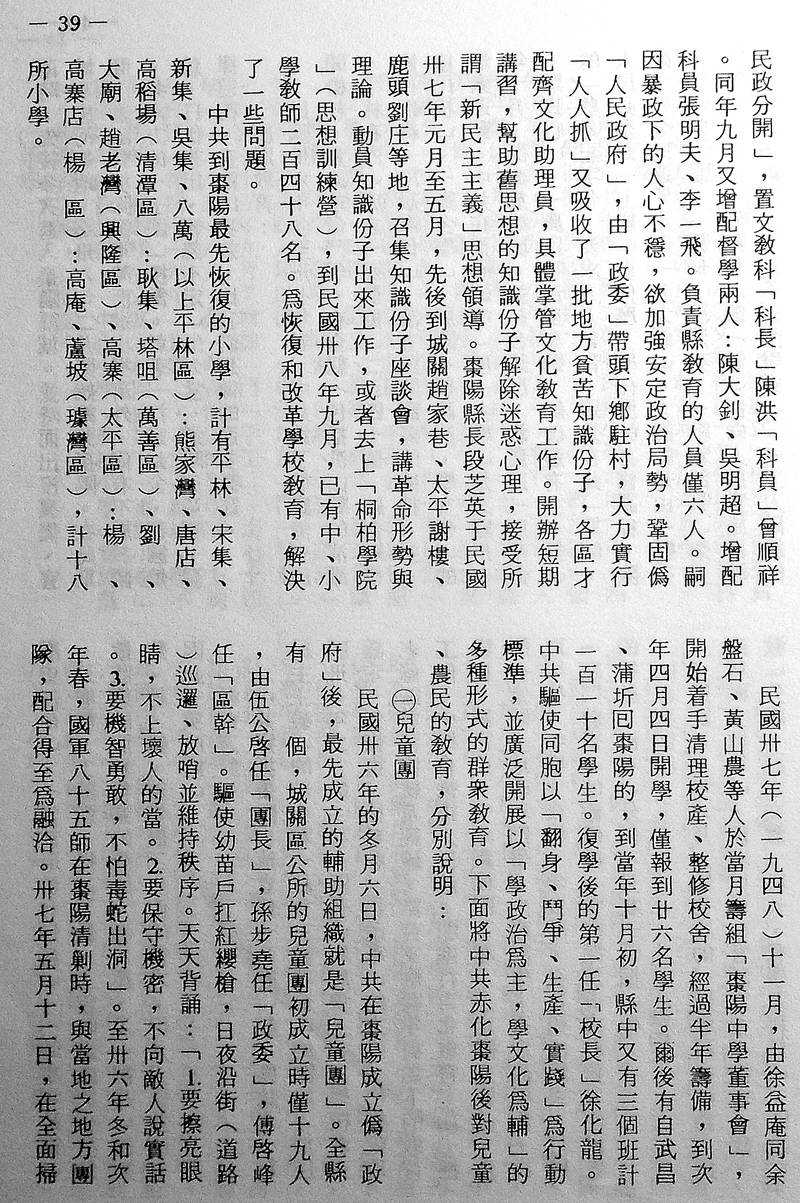 — 39 —
民政分開」，置文教科「科長」陳洪「科員」曾順祥
。同年九月又增配督學兩人：陳大釗、吳明超。增配
科員張明夫、李一飛。負責縣教育的人員僅六人。嗣
因暴政下的人心不穩，欲加強安定政治局勢，鞏固偽
「人民政府」，由「政委」帶頭下鄉駐村，大力實行
「人人抓」又吸收了一批地方貧苦知識份子，各區才
配齊文化助理員，具體掌管文化教育工作。開辦短期
講習，幫助舊思想的知識份子解除迷惑心理，接受所
謂「新民主主義」思想領導。棗陽縣長段芝英于民國
卅七年元月至五月，先後到城關趙家巷、太平謝樓、
鹿頭劉庄等地，召集知識份子座談會，講革命形勢與
理論。動員知識份子出來工作，或者去上「桐柏學院
」（思想訓練營），到民國卅八年九月，已有中、小
學教師二百四十八名。爲恢復和改革學校教育，解決
了一些問題。
中共到棗陽最先恢復的小學，計有平林、宋集、
新集、吳集、八萬（以上平林區）：熊家灣、唐店、
高稻場（清潭區）：耿集、塔咀（萬善區）、劉　、
大廟、趙老灣（興隆區）、高寨（太平區）：楊　、
高寨店（楊　區）：高庵、蘆坡（璩灣區），計十八
所小學。
民國卅七年（一九四八）十一月，由徐益庵同余
盤石、黃山農等人於當月籌組「棗陽中學董事會」，
開始着手清理校產、整修校舍，經過半年籌備，到次
年四月四日開學，僅報到廿六名學生。爾後有自武昌
、蒲圻囘棗陽的，到當年十月初，縣中又有三個班計
一百一十名學生。復學後的第一任「校長」徐化龍。
中共驅使同胞以「翻身、鬥爭、生產、實踐」爲行動
標準，並廣泛開展以「學政治爲主，學文化爲輔」的
多種形式的群衆教育。下面將中共赤化棗陽後對兒童
、農民的教育，分別說明：
㊀兒童團
民國卅六年的冬月六日，中共在棗陽成立偽「政
府」後，最先成立的輔助組織就是「兒童團」。全縣
有　　個，城關區公所的兒童團初成立時僅十九人
，由伍公啓任「團長」，孫步堯任「政委」，傅啓峰
任「區幹」。驅使幼苗戶扛紅纓槍，日夜沿街（道路
）巡邏、放哨並維持秩序。天天背誦：「1.要擦亮眼
睛，不上壞人的當。2.要保守機密，不向敵人說實話
。3.要機智勇敢，不怕毒蛇出洞」。至卅六年冬和次
年春，國軍八十五師在棗陽清剿時，與當地之地方團
隊，配合得至爲融洽。卅七年五月十二日，在全面掃